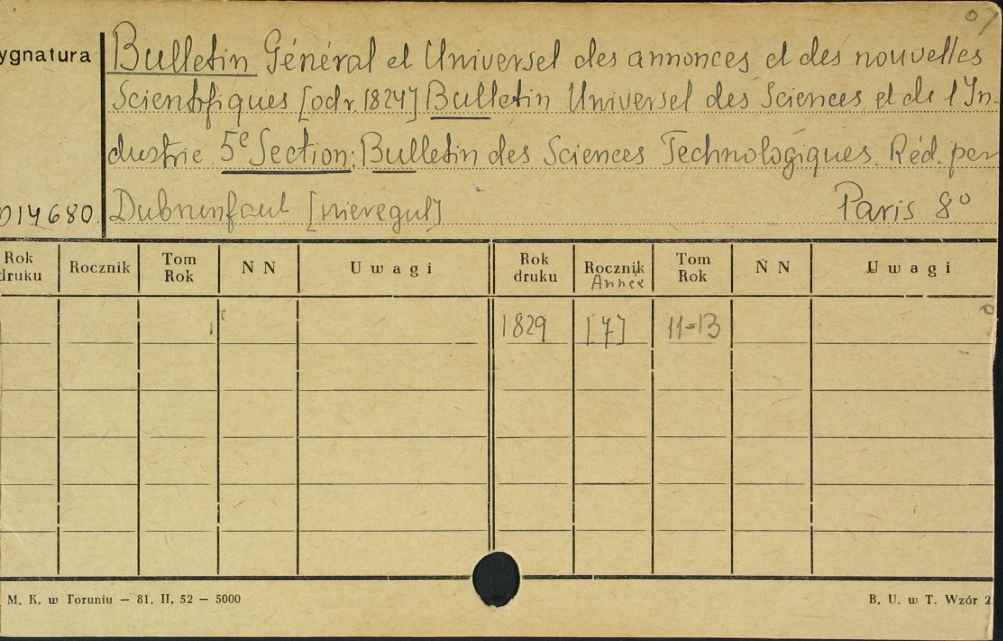 ygnatura
Bulletin Général et Universel des annonces et des nouvelles
Scientifiques [od r. 1824] Bulletin Universel des Sciences et de l'In-
dustrie 5e Section: Bulletin des Sciences Technologiques. Réd. par
014680. Dubrunfaut [nieregul] Paris 8°
Rok druku Rocznik Tom Rok N N Uwagi Rok druku Rocznik Année Tom Rok N N Uwagi
1829 [7] 11-13
M. K. w Toruniu — 81. II. 52 — 5000 B. U. w T. Wzór 2